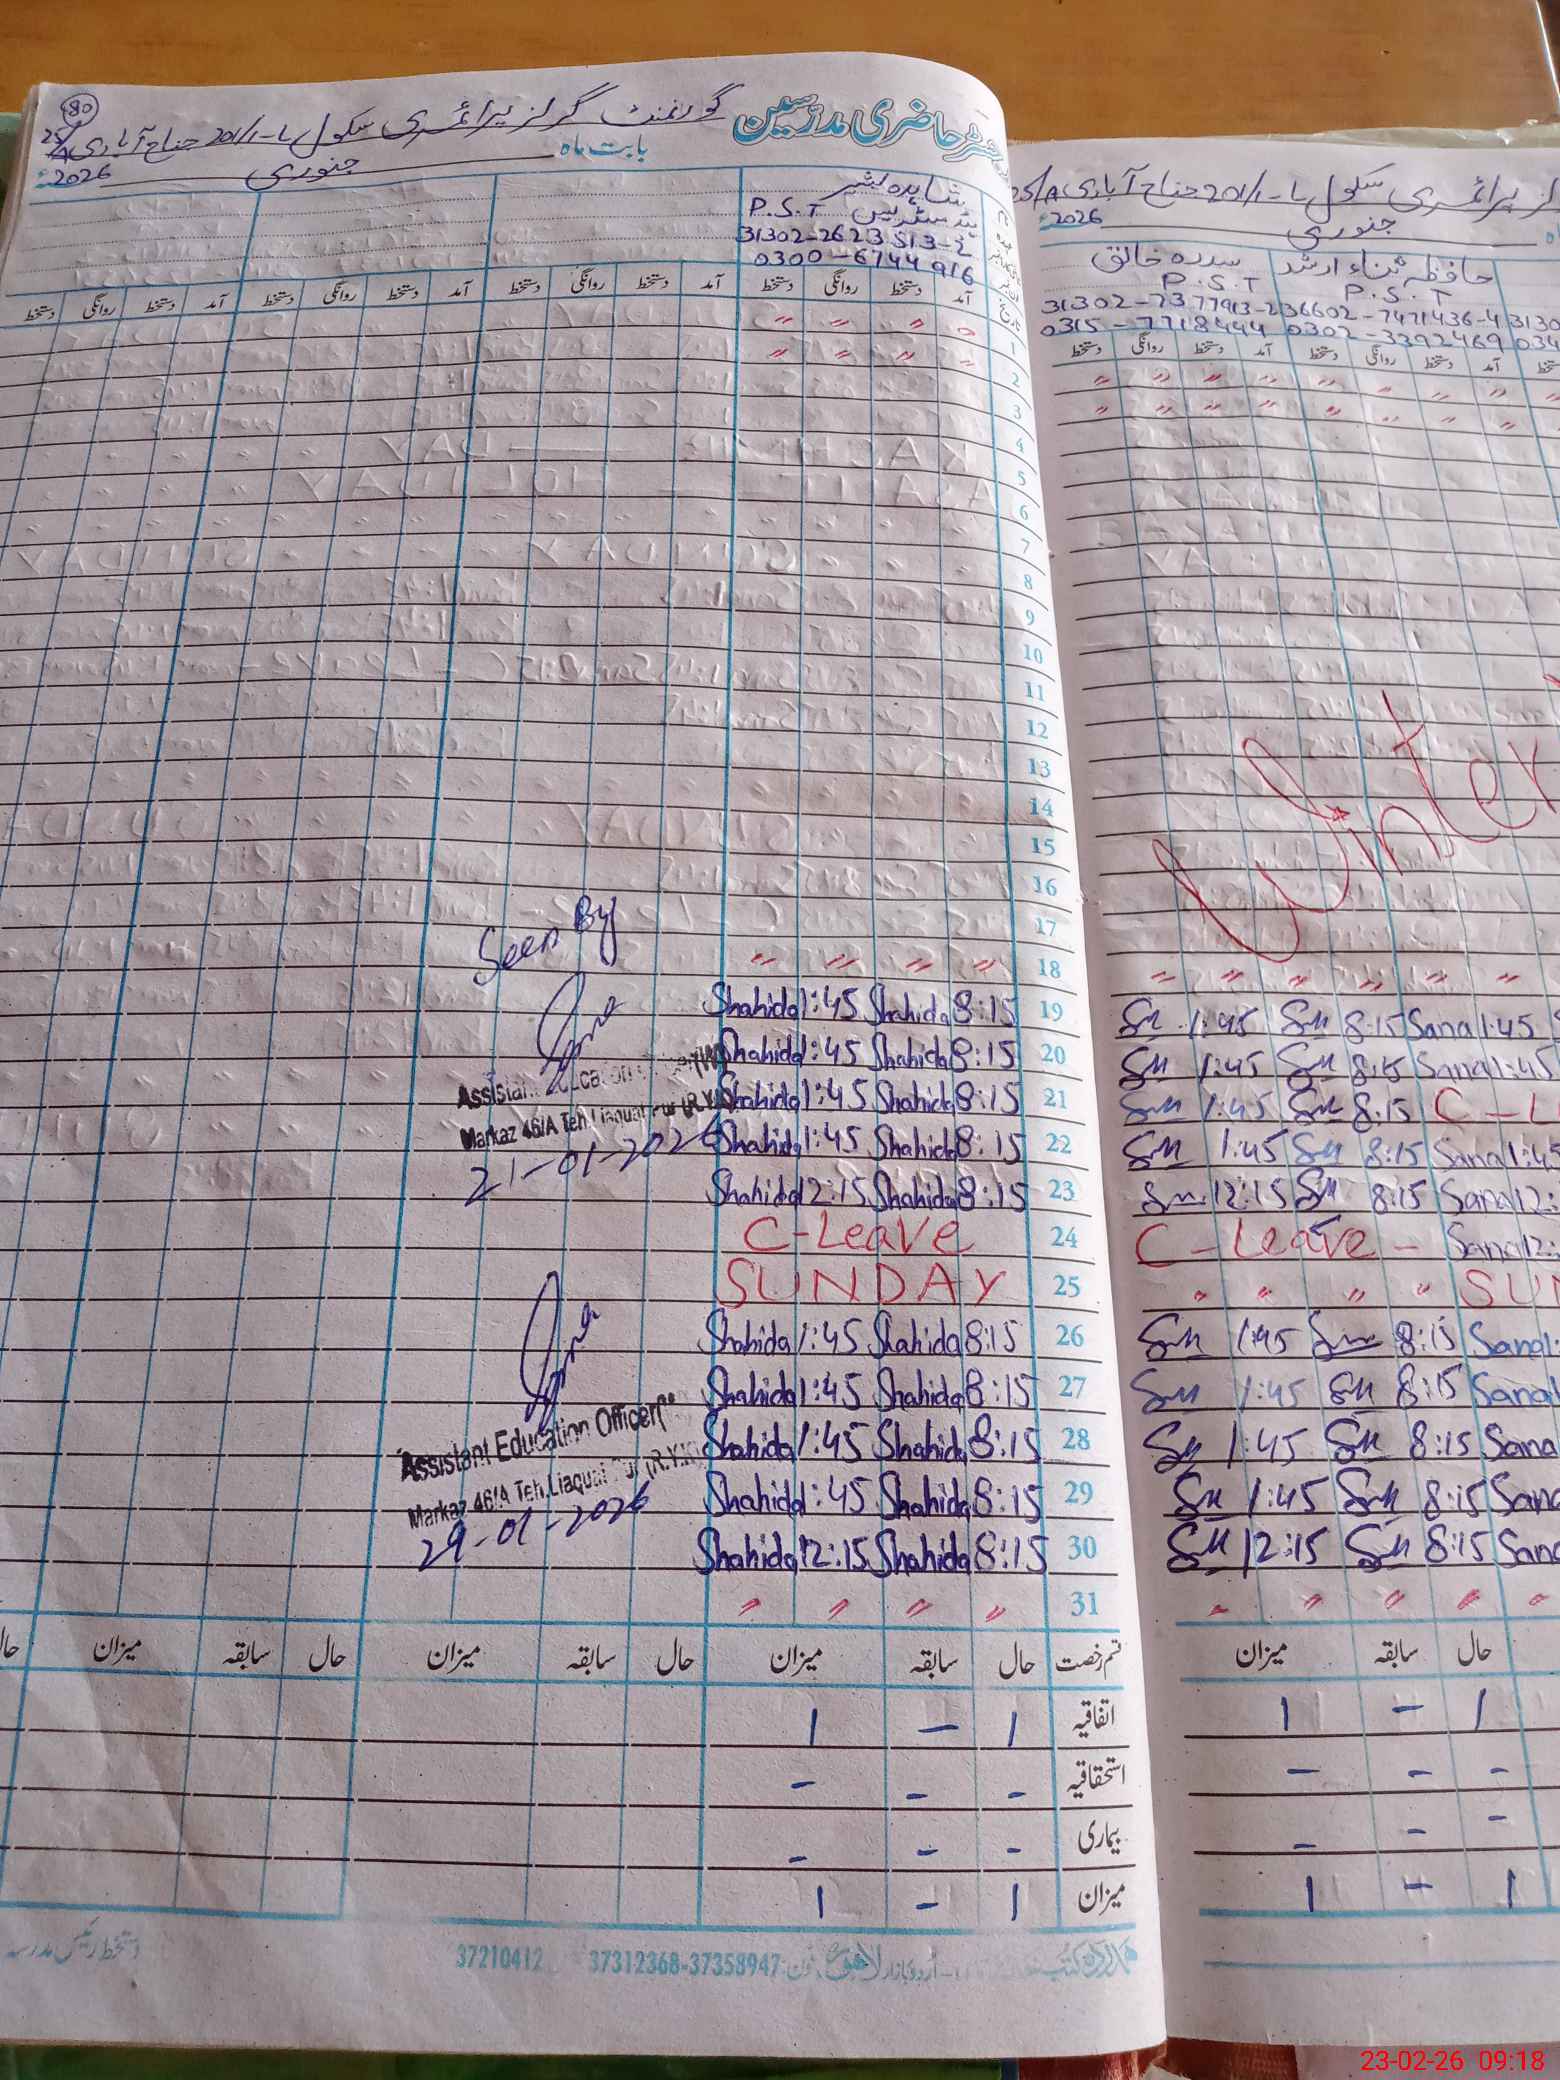 80
گورنمنٹ گرلز پرائمری سکول 201/1-L جناح آبادی 25/A
حاضری مدرسین
بابت ماہ جنوری 2026ء
شاہدہ بشیر
P.S.T ہیڈ مسٹریس
0300-6744916
تاریخ آمد دستخط روانگی دستخط آمد دستخط روانگی دستخط آمد دستخط روانگی دستخط
1 〃 〃 〃 〃
2 〃 〃 〃 〃
3
4
5
6
7
8
9
10
11
12
13
14
15
16
17
18 〃 〃 〃 〃
Seen By
19 8:15 Shahida 1:45 Shahida
20 8:15 Shahida 1:45 Shahida
21 8:15 Shahida 1:45 Shahida
22 8:15 Shahida 1:45 Shahida
23 8:15 Shahida 12:15 Shahida
Assistant Education Officer (W)
Markaz 46/A Teh. Liaquat Pur (R.Y.K)
21-01-2026
24 C-Leave
25 SUNDAY
26 8:15 Shahida 1:45 Shahida
27 8:15 Shahida 1:45 Shahida
28 8:15 Shahida 1:45 Shahida
29 8:15 Shahida 1:45 Shahida
30 8:15 Shahida 12:15 Shahida
31 〃 〃 〃 〃
Assistant Education Officer
Markaz 46/A Teh. Liaquat Pur (R.Y.K)
29-01-2026
قسم رخصت حال سابقہ میزان حال سابقہ میزان حال سابقہ میزان حال
اتفاقیہ 1 - 1
استحقاقیہ - - -
بیماری - - -
میزان 1 - 1
اردو بازار لاہور فون: 37312368-37358947 37210412
دستخط رئیس مدرسہ
پرائمری سکول 201/1-L جناح آبادی 25/A
جنوری 2026ء
حافظہ ثناء ارشد سدرہ خالق
P.S.T P.S.T
36602-7471436-4 31302-2377913-2
0302-3392469 0315-7718444
آمد دستخط روانگی دستخط آمد دستخط روانگی دستخط
〃 〃 〃 〃 〃 〃 〃 〃
〃 〃 〃 〃 〃 〃 〃 〃
Winter
〃 〃 〃 〃 〃 〃
1:45 8:15 Sana 1:45
1:45 8:15 Sana 1:45
1:45 8:15 C-L
1:45 8:15 Sana 1:45
12:15 8:15 Sana 12:
C-Leave- Sana 12:
〃 〃 〃 〃 SUN
1:45 8:15 Sana 1:
1:45 8:15 Sana
1:45 8:15 Sana
1:45 8:15 Sana
12:15 8:15 Sana
〃 〃 〃 〃 〃
حال سابقہ میزان
1 - 1
- - -
- - -
1 - 1
23-02-26 09:18